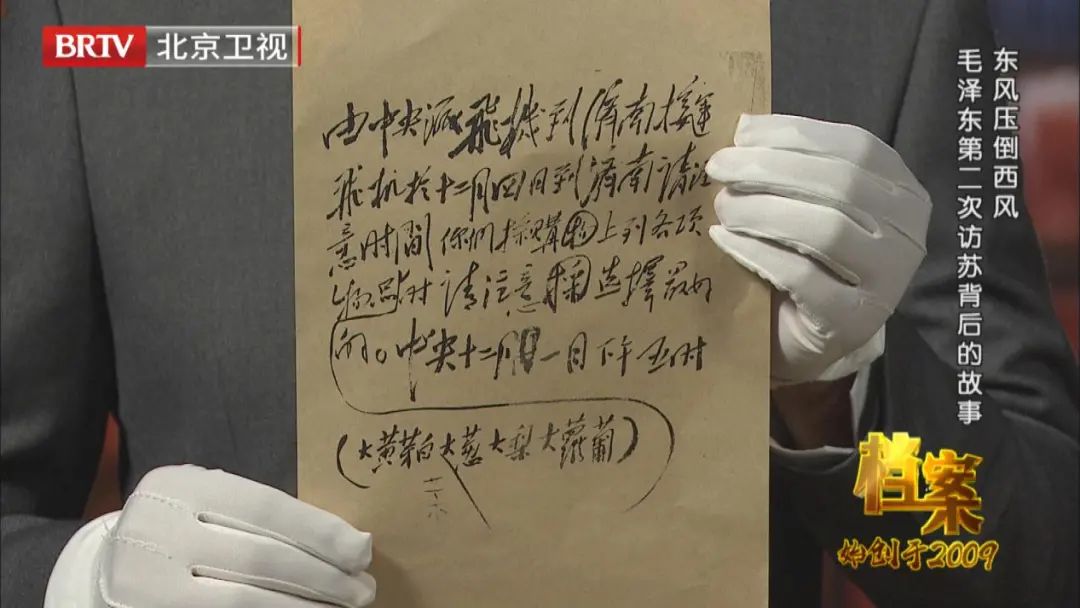 BRTV 北京卫视
东风压倒西风
毛泽东第二次访苏背后的故事
由中央派飛機到濟南接運
飛机於十二月四日到濟南请注
意时间你們採購上列各项
物品时请注意选擇最好
的。中央十二月一日下午五时
(大黄芽白大葱大梨大蘿蔔)
档案
始创于2009